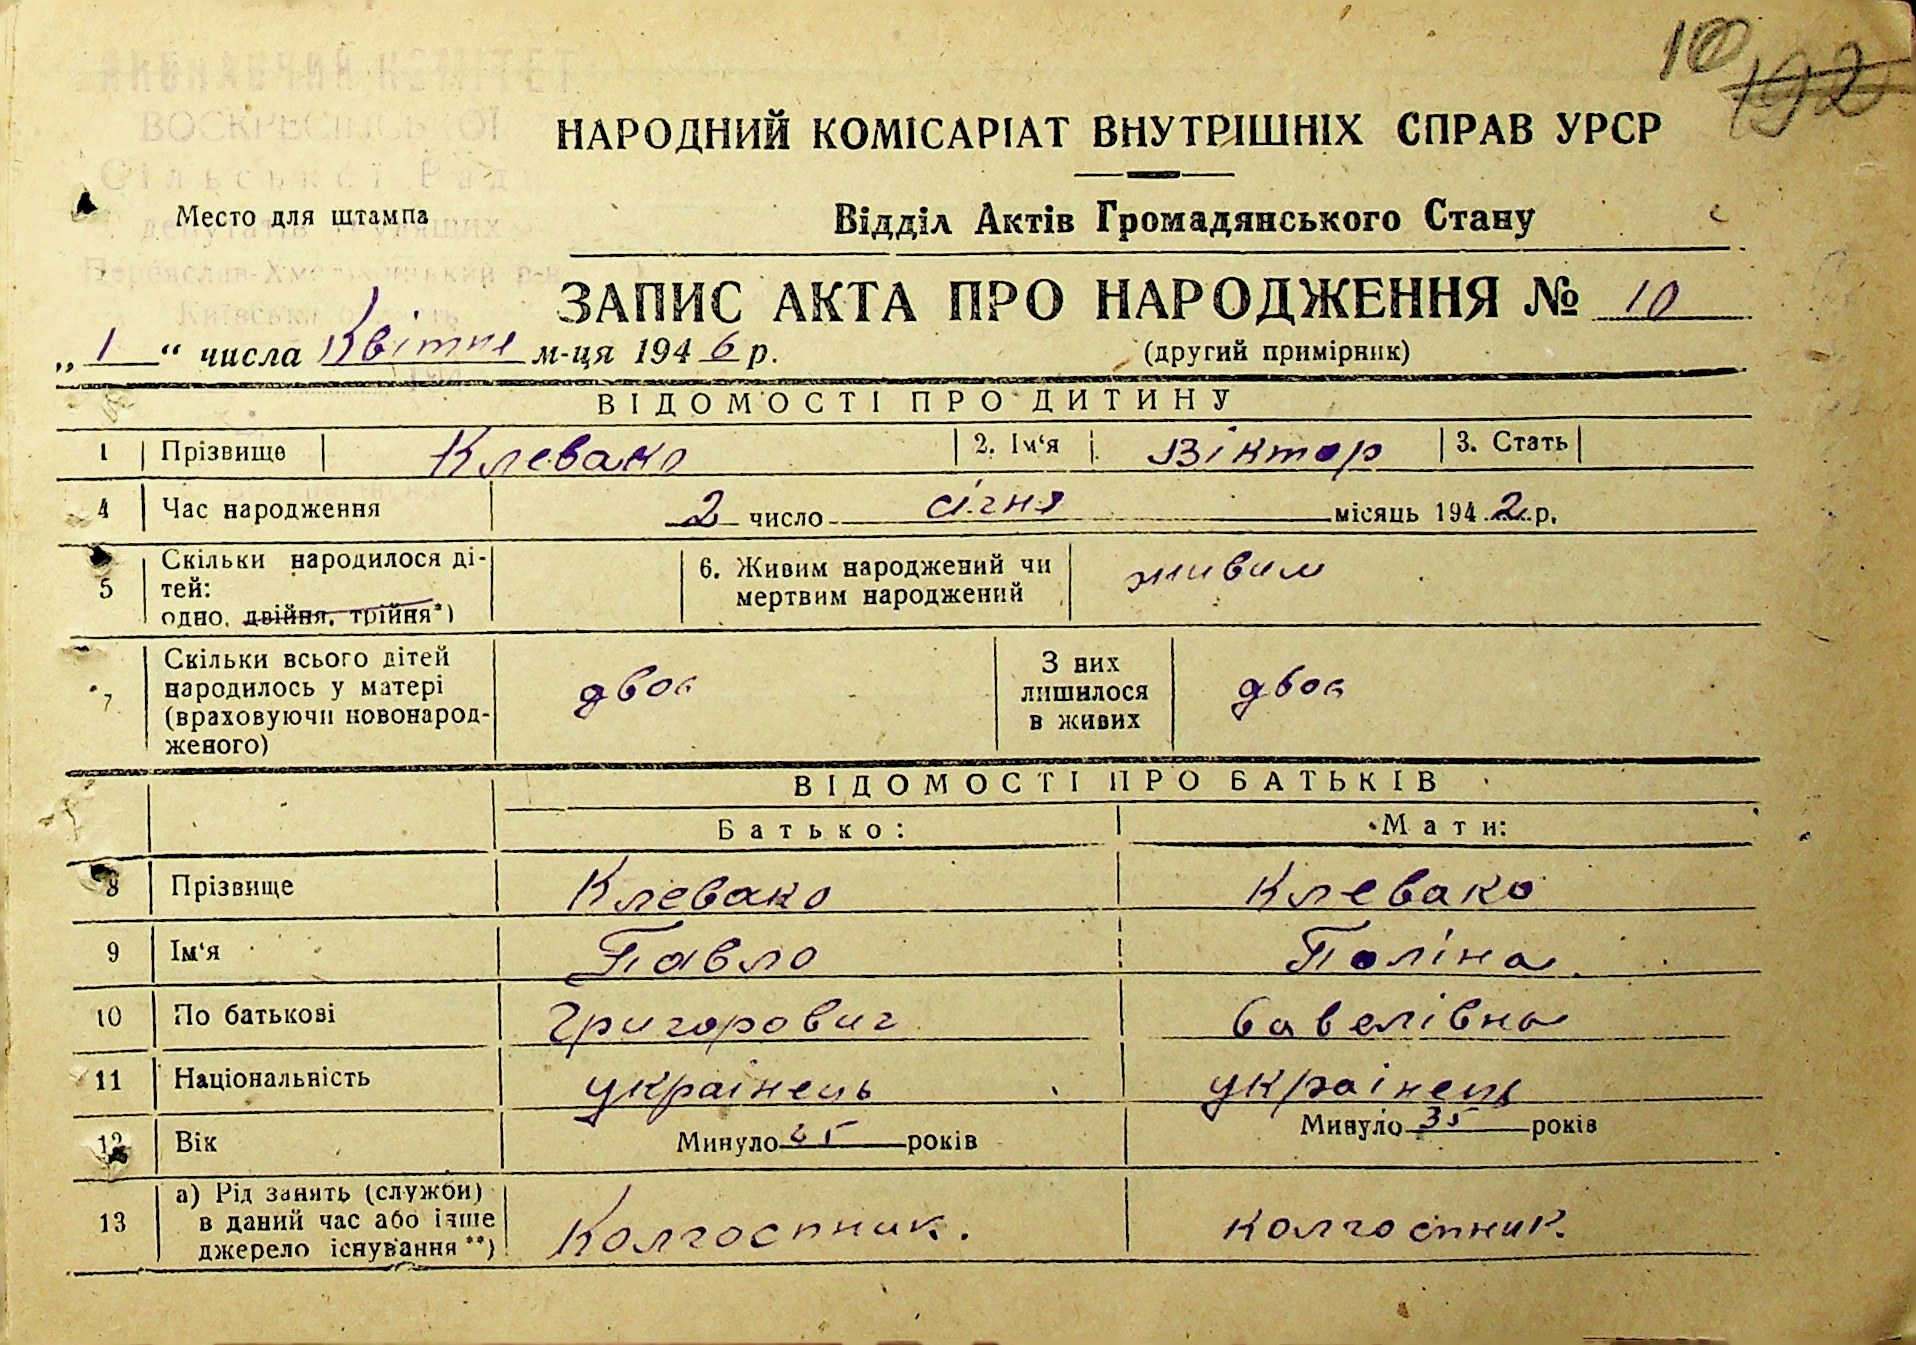 10
192
ВИКОНАВЧИЙ КОМІТЕТ
ВОСКРЕСЕНСЬКОЇ
Сільської Ради
депутатів трудящих
Переяслав-Хмельницький р-н
Київська область
НАРОДНИЙ КОМІСАРІАТ ВНУТРІШНІХ СПРАВ УРСР
Место для штампа
Відділ Актів Громадянського Стану
ЗАПИС АКТА ПРО НАРОДЖЕННЯ № 10
„ 1 “ числа Квітня м-ця 1946 р.
(другий примірник)
ВІДОМОСТІ ПРО ДИТИНУ
1 Прізвище Клевако 2. Ім‘я Віктор 3. Стать
4 Час народження 2 число січня місяць 1942 р.
5 Скільки народилося ді-
тей:
одно, двійня, трійня*)
6. Живим народжений чи
мертвим народжений
живим
7 Скільки всього дітей
народилось у матері
(враховуючи новонарод-
женого)
двоє
З них
лишилося
в живих
двоє
ВІДОМОСТІ ПРО БАТЬКІВ
Батько: Мати:
8 Прізвище Клевако Клевако
9 Ім‘я Павло Поліна
10 По батькові Григорович Савелівна
11 Національність украінець украінець
12 Вік Минуло років Минуло 35 років
13 а) Рід занять (служби)
в даний час або інше
джерело існування**)
Колгоспник. колгоспник.